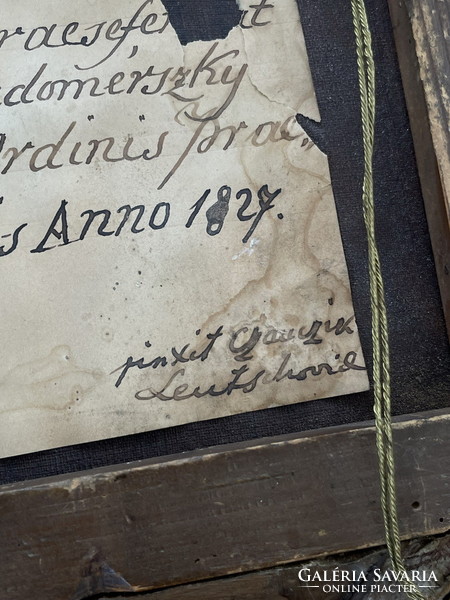 raesefe t
domérszky
Ordinis prae,
s Anno 1827.
pinxit Czauczik
Leutschoviæ
GALÉRIA SAVARIA
ONLINE PIACTÉR